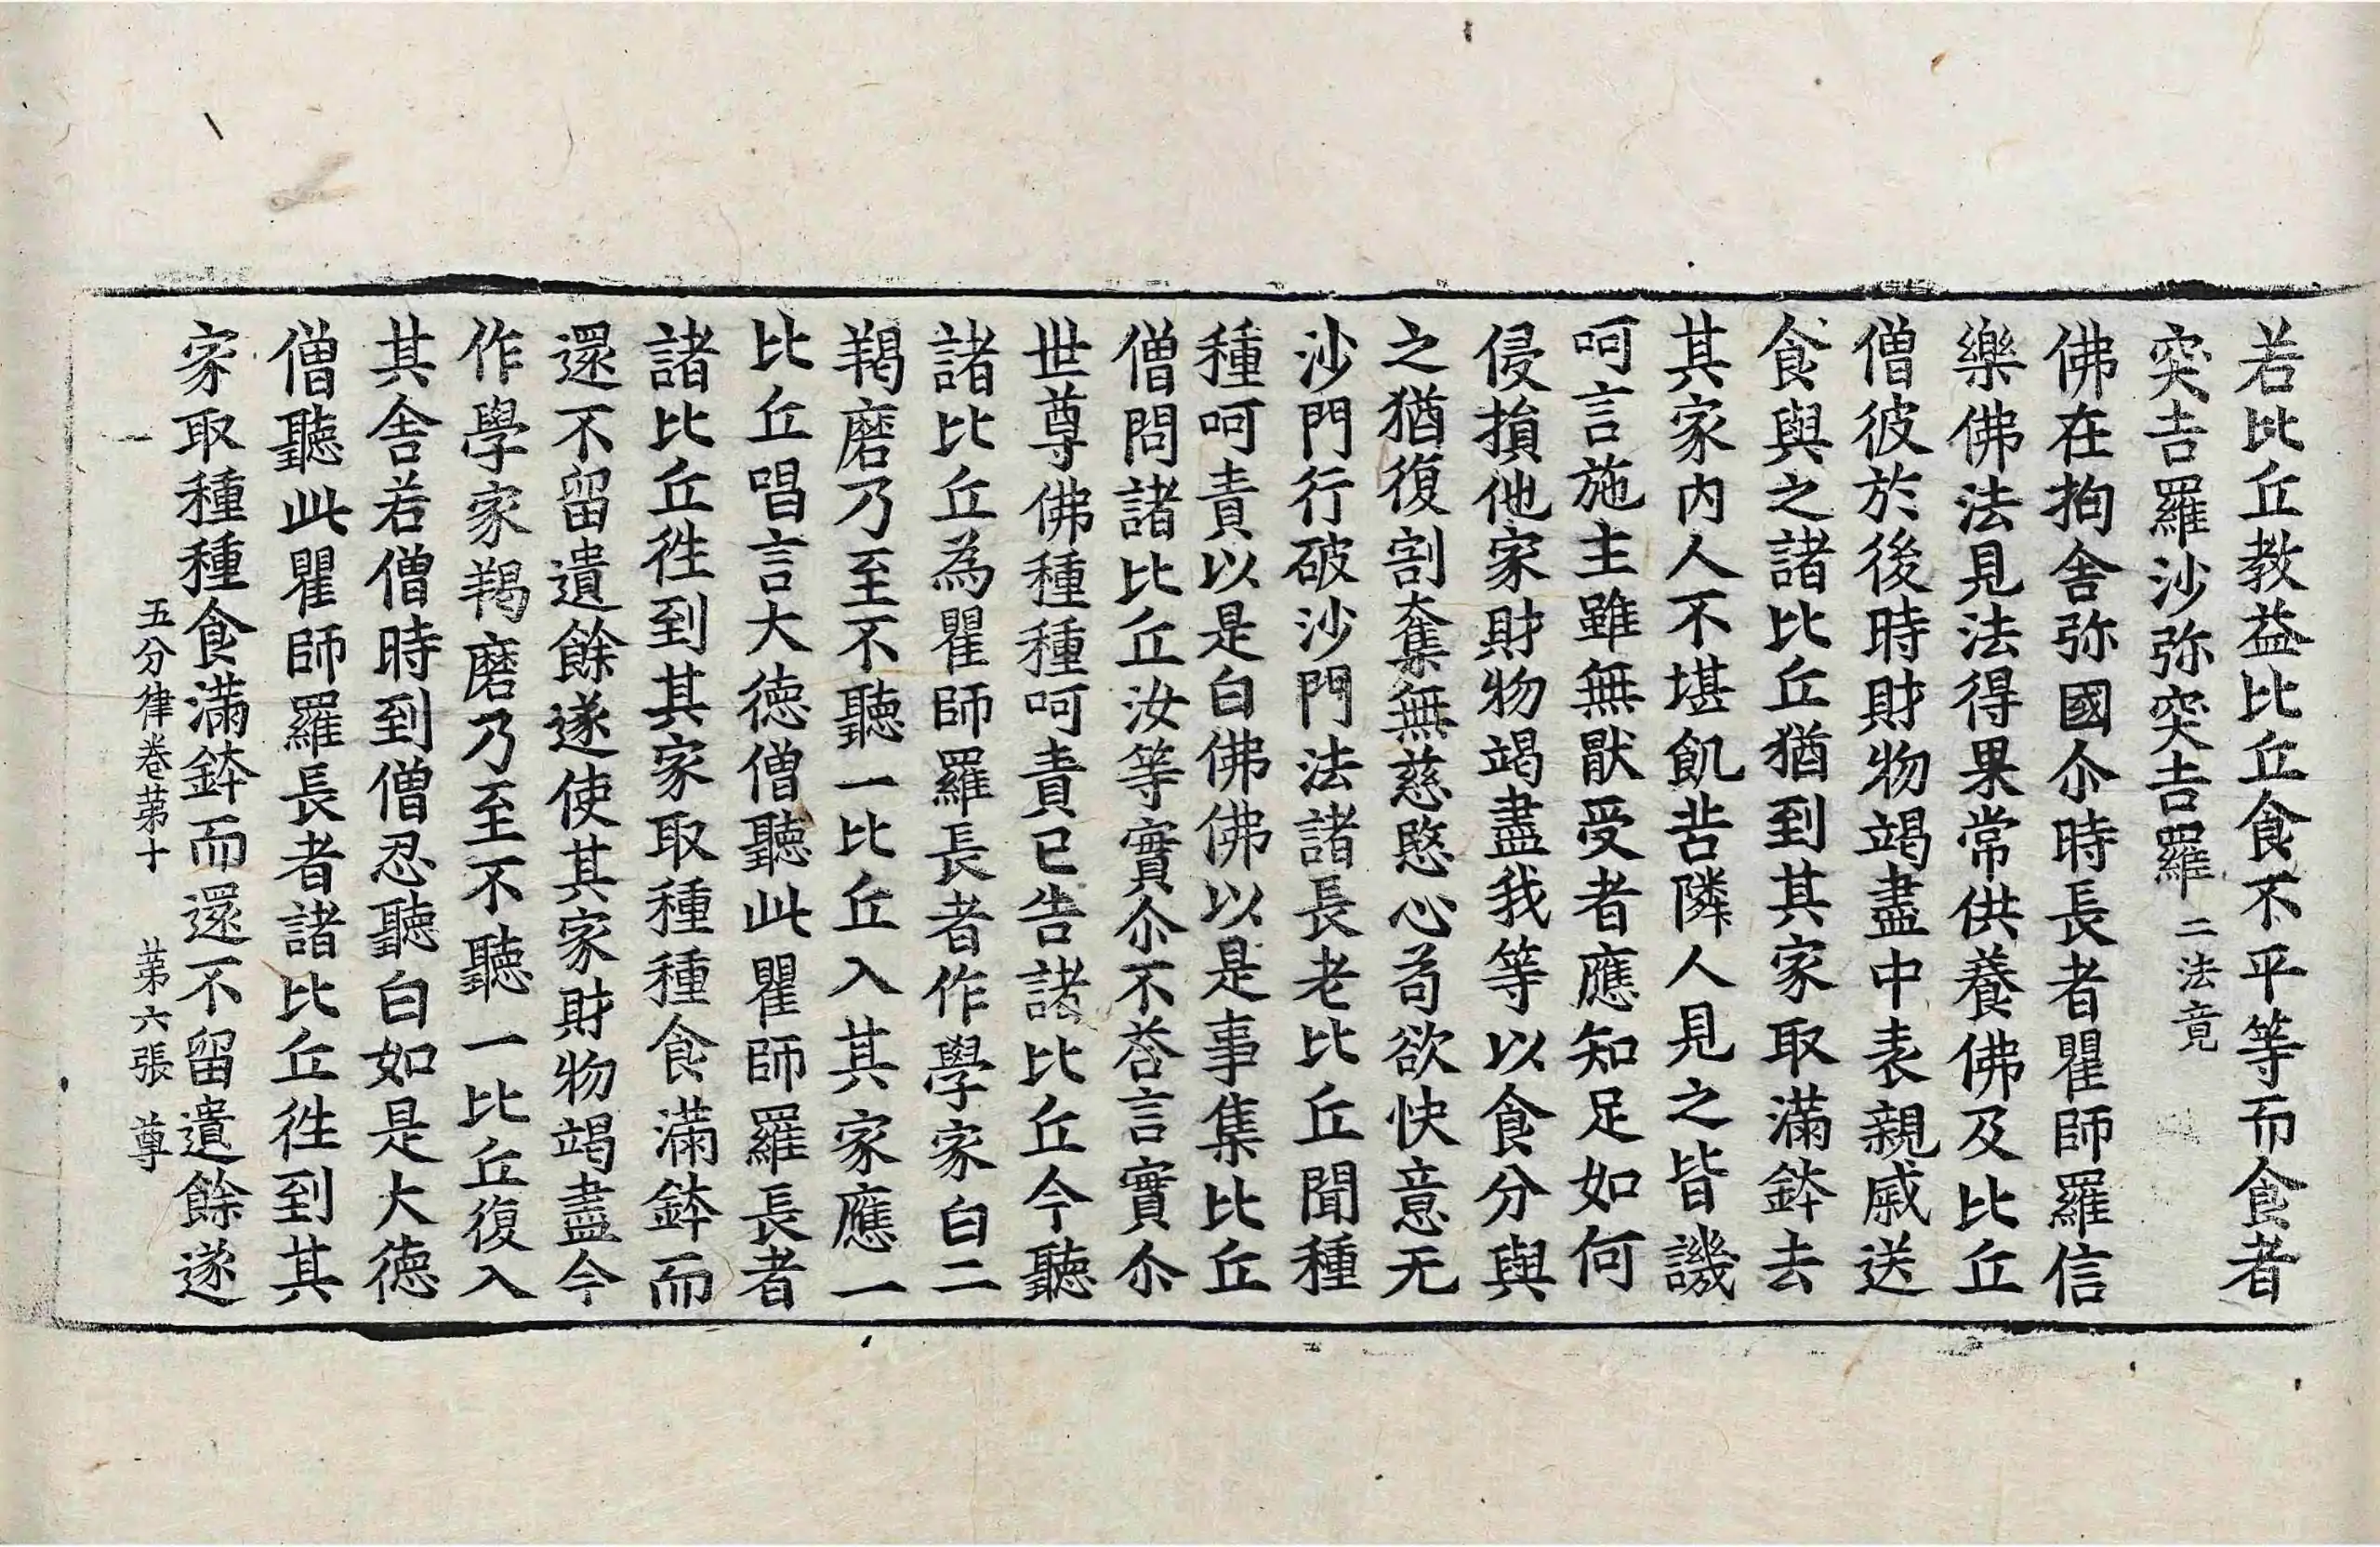 若比丘教益比丘食不平等而食者
突吉羅沙弥突吉羅二法竟
佛在拘舍弥國尒時長者瞿師羅信
樂佛法見法得果常供養佛及比丘
僧彼於後時財物竭盡中表親戚送
食與之諸比丘猶到其家取滿鉢去
其家內人不堪飢苦隣人見之皆譏
呵言施主雖無猒受者應知足如何
侵損他家財物竭盡我等以食分與
之猶復割奪無慈愍心苟欲快意无
沙門行破沙門法諸長老比丘聞種
種呵責以是白佛佛以是事集比丘
僧問諸比丘汝等實尒不荅言實尒
世尊佛種種呵責已告諸比丘今聽
諸比丘為瞿師羅長者作學家白二
羯磨乃至不聽一比丘入其家應一
比丘唱言大德僧聽此瞿師羅長者
諸比丘徃到其家取種種食滿鉢而
還不留遺餘遂使其家財物竭盡今
作學家羯磨乃至不聽一比丘復入
其舍若僧時到僧忍聽白如是大德
僧聽此瞿師羅長者諸比丘徃到其
家取種種食滿鉢而還不留遺餘遂
五分律卷苐十 苐六張 尊